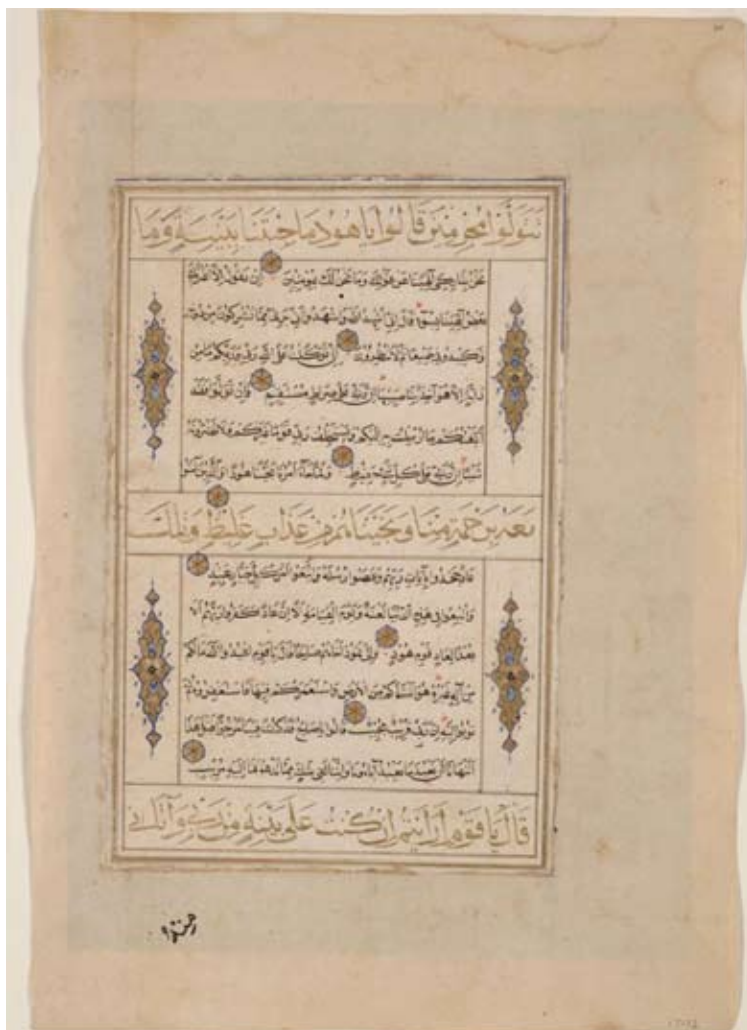 تتولوا مجرمين قالوا يا هود ما جئتنا ببينة وما
نحن بتاركي آلهتنا عن قولك وما نحن لك بمؤمنين إن نقول إلا اعتراك
بعض آلهتنا بسوء قال إني أشهد الله واشهدوا أني بريء مما تشركون من دونه
فكيدوني جميعا ثم لا تنظرون إني توكلت على الله ربي وربكم ما من
دابة إلا هو آخذ بناصيتها إن ربي على صراط مستقيم فإن تولوا فقد
أبلغتكم ما أرسلت به إليكم ويستخلف ربي قوما غيركم ولا تضرونه
شيئا إن ربي على كل شيء حفيظ ولما جاء أمرنا نجينا هودا والذين آمنوا
معه برحمة منا ونجيناهم من عذاب غليظ وتلك
عاد جحدوا بآيات ربهم وعصوا رسله واتبعوا أمر كل جبار عنيد
وأتبعوا في هذه الدنيا لعنة ويوم القيامة ألا إن عادا كفروا ربهم ألا
بعدا لعاد قوم هود وإلى ثمود أخاهم صالحا قال يا قوم اعبدوا الله ما لكم
من إله غيره هو أنشأكم من الأرض واستعمركم فيها فاستغفروه ثم
توبوا إليه إن ربي قريب مجيب قالوا يا صالح قد كنت فينا مرجوا قبل هذا
أتنهانا أن نعبد ما يعبد آباؤنا وإننا لفي شك مما تدعونا إليه مريب
قال يا قوم أرأيتم إن كنت على بينة من ربي وآتاني